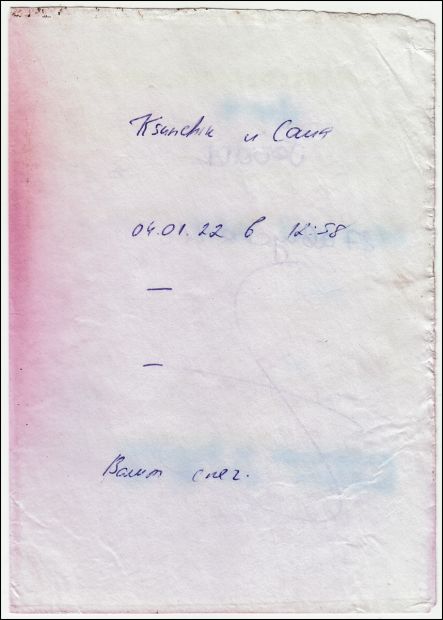 Ksunchik и Саша
04.01.22 в 12:58
—
—
Валит снег.